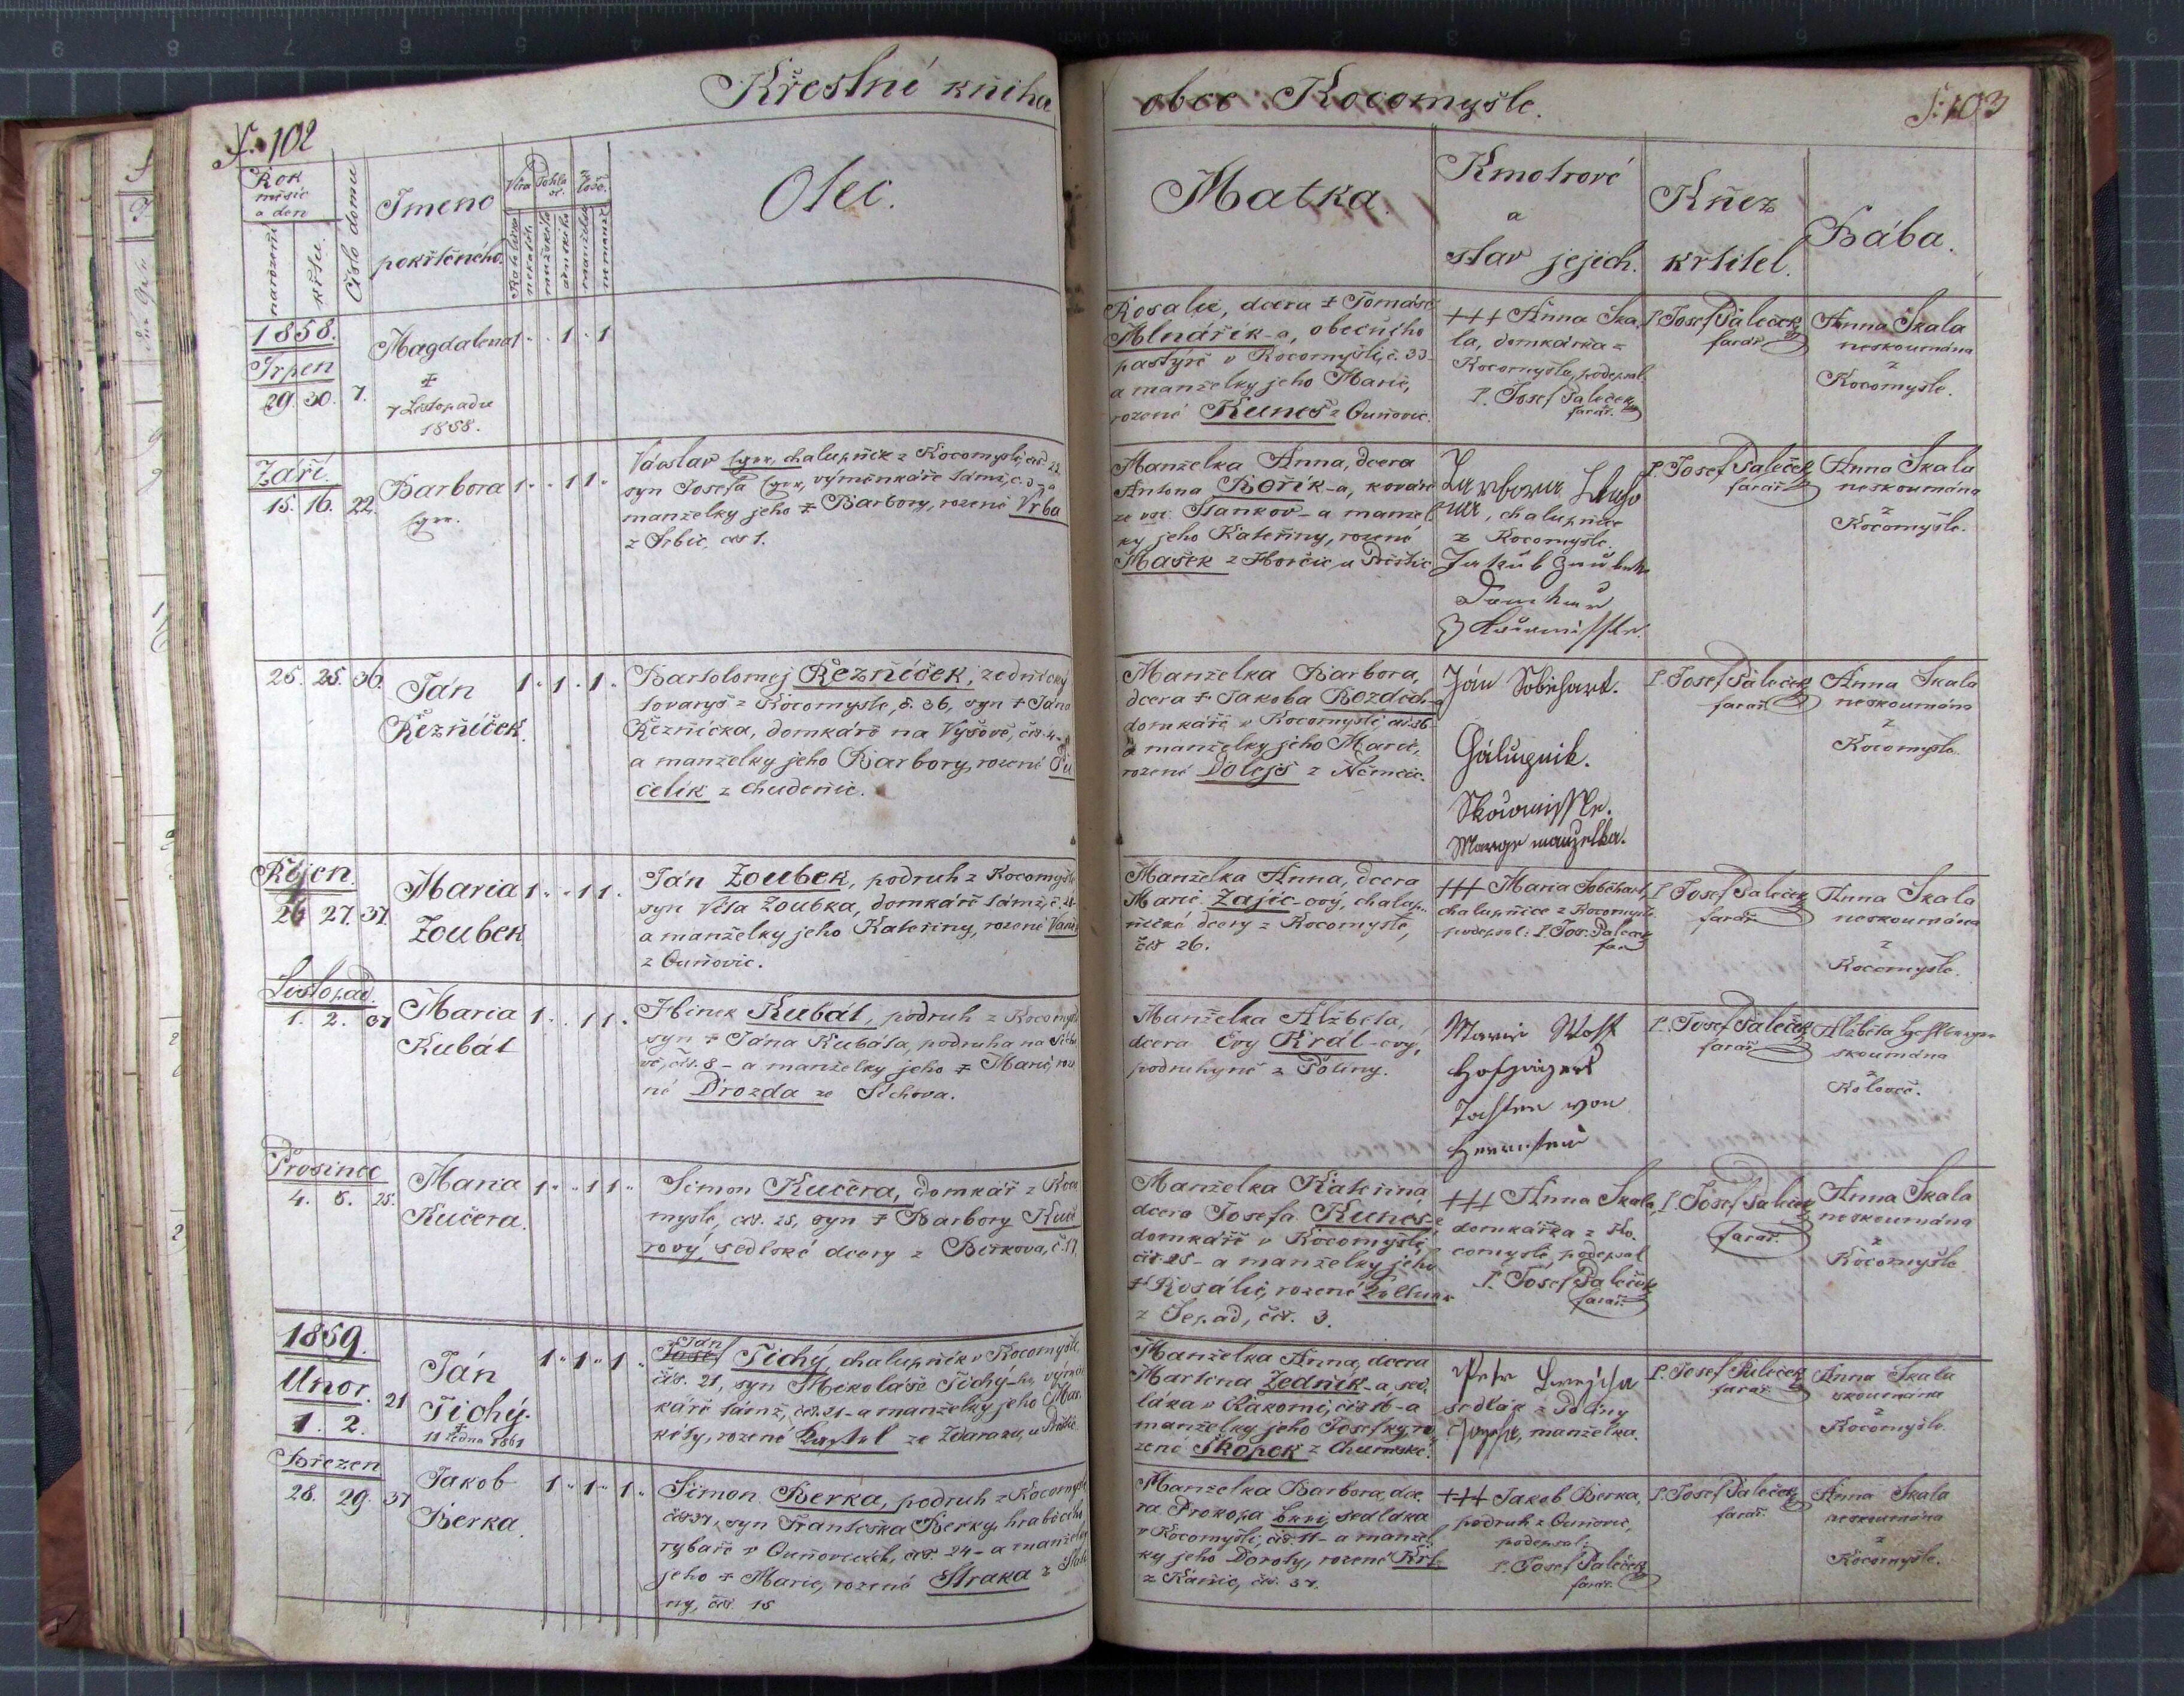 Křestné kniha
f. 102
Rok
měsíc
a den
narození
křtu.
Číslo domu
Jmeno
pokřtěného
Víra
Pohla
ví.
Lože.
Katolické
nekatol.
mužského
ženského
manželské
nemanž.
Otec.
1858.
Srpen
29. 30. 7.
Magdalena 1 " " 1 " 1
‡
7 Listopadu
1858.
Září.
15. 16. 22.
Barbora 1 " " 1 1 "
Václav chalupník z Kocomyšle, čís. 22.
syn Josefa výměnkáře támž, č.
manželky jeho ‡ Barbory, rozené Vrba
z Srbic, čís 1.
25. 25. 36.
Ján 1 " 1 " 1 "
Řezníček.
Bartolomej Řezníček, zednický
tovaryš z Kocomyšle, č. 36, syn ‡ Jána
Řezníčka, domkáře na Výšově, čís. 4
a manželky jeho Barbory, rozené Pu
čelík z Chudenic.
Říjen.
26 27. 37.
Maria 1 " " 1 1 "
Zoubek
Ján Zoubek, podruh z Kocomyšle
syn Víta Zoubka, domkáře támž, č. 28
a manželky jeho Kateřiny, rozené
z Ounovic.
Listopad.
1. 2. 37
Maria 1 " " 1 1 "
Kubát
Hinek Kubát, podruh z Kocomyšle
syn ‡ Jána Kubáta, podruha na
vě, čís. 8 - a manželky jeho ‡ Marie, roz
né Drozda ze Sichova.
Prosinec
4. 5. 25.
Maria 1 " " 1 1 "
Kučera.
Šimon Kučera, domkář z Koco
myšle, čís. 25, syn ‡ Barbory Kuče
rový, sedlské dcery z Berkova, č. 17.
1859.
Unor.
1. 2. 21
Ján 1 " 1 " 1 "
Tichý.
11 ledna 1861
Ján
Josef Tichý, chalupník v Kocomyšle,
čís. 21, syn Mikoláše Tichý-ho, výměn
káře támž, čís. 21 - a manželky jeho Mar
kéty, rozené ze Ždarazu, u
Březen
28. 29. 37
Jakob 1 " 1 " 1 "
Berka.
Šimon Berka, podruh z Kocomyšle
čís 37, syn Františka Berky, hraběcího
rybáře v Ounovicích, čís. 24 - a manželky
jeho ‡ Marie, rozené Straka z
ny, čís. 15
obce Kocomyšle.
f. 103
Matka.
Kmotrové
a
stav jejich.
Kněz
křtitel.
Bába.
Rosalie, dcera ‡ Tomáše
Mlnářik-a, obecního
pastýře v Kocomyšli, č. 33
a manželky jeho Marie,
rozené Kuneš z Ounovic.
+++ Anna Ska
la, domkářka z
Kocomyšle, podepsal
P. Josef Paleček
farář.
P. Josef Paleček
farář
Anna Skala
neskoumána
z
Kocomyšle.
Manželka Anna, dcera
Antona Bořík-a, kováře
ze vsi Stankov - a manžel
ky jeho Kateřiny, rozené
Mašek z Horčic u Přestic
chalupnice
z Kocomyšle.
Jakub
P. Josef Paleček
farář
Anna Skala
neskoumána
z
Kocomyšle.
Manželka Barbora,
dcera ‡ Jakoba Bozděch-a
domkáře v Kocomyšli, čís 36
a manželky jeho Marie,
rozené Dolejš z Němčic.
Ján Sobehart.
Galupnik.
Skocomissle.
Marge manzelka.
P. Josef Paleček
farář
Anna Skala
neskoumána
z
Kocomyšle.
Manželka Anna, dcera
Marie Zajíc-ový, chalup-
nické dcery z Kocomyšle,
čís 26.
+++ Maria Sobehart,
chalupnice z Kocomyšle
podepsal: P. Jos. Paleček
far
P. Josef Paleček
farář
Anna Skala
neskoumána
z
Kocomyšle.
Manželka Alžběta,
dcera Evy Král-ový,
podruhyně z Poliny.
Marie Wolf
Tochter von
P. Josef Paleček
farář
Alžběta
skoumána
z
Koloveč.
Manželka Kateřina
dcera Josefa Kuneš-e
domkáře v Kocomyšli,
čís 25 - a manželky jeho
‡ Rosálie, rozené
z Sepad, čís. 3.
+++ Anna Skala,
domkářka z Ko-
comyšle, podepsal
P. Josef Paleček
farář.
P. Josef Paleček
farář.
Anna Skala
neskoumána
z
Kocomyšle
Manželka Anna, dcera
Martina Zedník-a, sed.
láka v Kákomi, čís 16 - a
manželky jeho Josefky, ro
zené Skopek z
Petr
sedlák z Poliny
manželka.
P. Josef Paleček
farář.
Anna Skala
skoumána
z
Kocomyšle.
Manželka Barbora, dce
ra Prokopa sedláka
v Kocomyšli, čís. 11 - a manžel
ky jeho Doroty, rozené
z Kánic, čís. 37.
+++ Jakob Berka,
podruh z Ounovic,
podepsal:
P. Josef Paleček
farář.
P. Josef Paleček
farář.
Anna Skala
neskoumána
z
Kocomyšle.